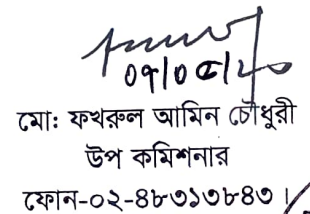 ০৭/০৫/২০
মো: ফখরুল আমিন চৌধুরী
উপ কমিশনার
ফোন-০২-৪৮৩১৩৮৪৩।